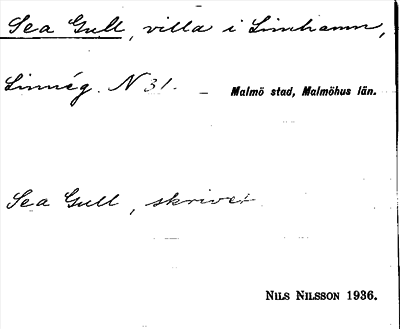 Sea Gull, villa i Limhamn,
Linnég. N 31. – Malmö stad, Malmöhus län.
Sea Gull, skriver
NILS NILSSON 1936.